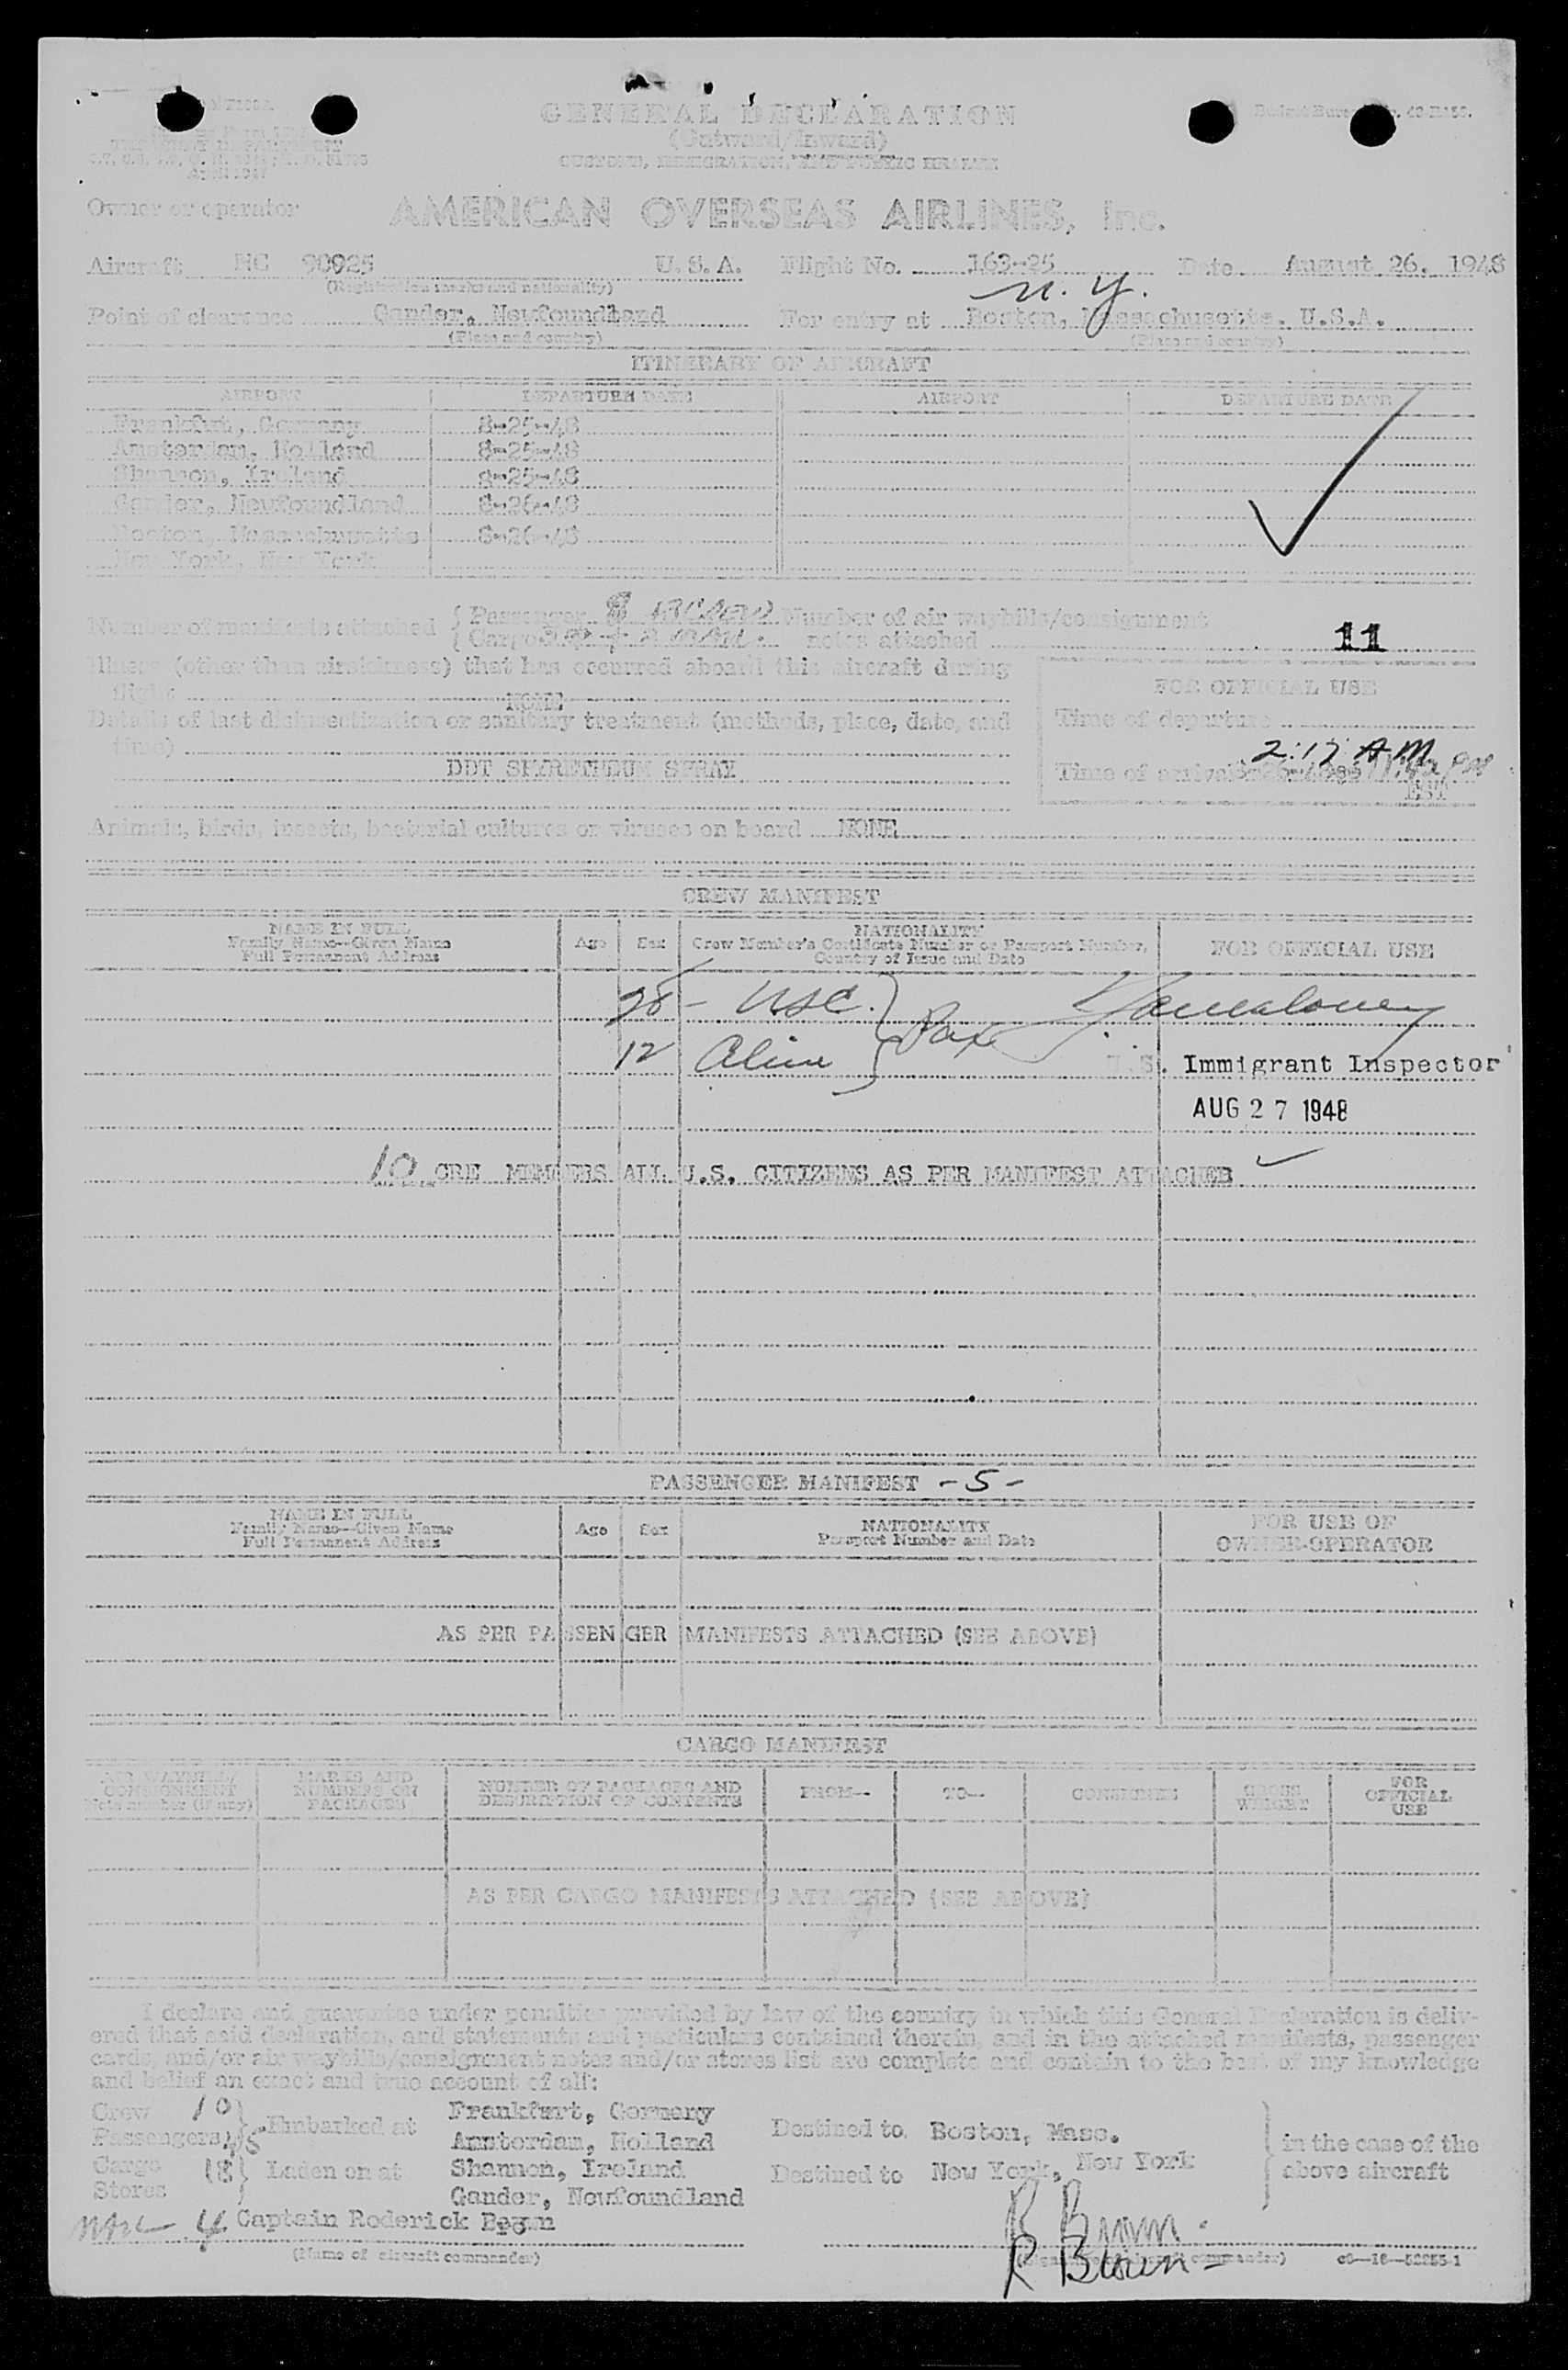 GENERAL DECLARATION
(Outward/Inward)
CUSTOMS, IMMIGRATION, AND PUBLIC HEALTH
April 1947
Owner or operator AMERICAN OVERSEAS AIRLINES, Inc.
Aircraft NC 90925 U. S. A. Flight No. 163-25 Date August 26, 1948
(Registration marks and nationality)
N. Y.
Point of clearance Gander, Newfoundland For entry at Boston, Massachusetts, U.S.A.
(Place and country) (Place and country)
ITINERARY OF AIRCRAFT
AIRPORT DEPARTURE DATE AIRPORT DEPARTURE DATE
Frankfurt, Germany 8-25-48
Amsterdam, Holland 8-25-48
Shannon, Ireland 8-25-48
Gander, Newfoundland 8-26-48
Boston, Massachusetts 8-26-48
New York, New York
Number of manifests attached { Passenger Number of air waybills/consignment
{ Cargo notes attached 11
Illness (other than airsickness) that has occurred aboard this aircraft during
flight NONE
FOR OFFICIAL USE
Details of last disinsectization or sanitary treatment (methods, place, date, and
time)
Time of departure
2:17 AM
DDT SPYRETHEUM SPRAY
Time of arrival
EST
Animals, birds, insects, bacterial cultures or viruses on board NONE
CREW MANIFEST
NAME IN FULL
Family Name—Given Name
Full Permanent Address
Age Sex
NATIONALITY
Crew Member's Certificate Number or Passport Number,
Country of Issue and Date
FOR OFFICIAL USE
28 - USC } Pax
12 Alien }
U.S. Immigrant Inspector
AUG 27 1948
10 CRE MEMBERS ALL U.S. CITIZENS AS PER MANIFEST ATTACHED
PASSENGER MANIFEST -5-
NAME IN FULL
Family Name—Given Name
Full Permanent Address
Age Sex
NATIONALITY
Passport Number and Date
FOR USE OF
OWNER-OPERATOR
AS PER PASSENGER MANIFESTS ATTACHED (SEE ABOVE)
CARGO MANIFEST
AIR WAYBILL/
CONSIGNMENT
Note number (if any)
MARKS AND
NUMBERS ON
PACKAGES
NUMBER OF PACKAGES AND
DESCRIPTION OF CONTENTS
FROM— TO— CONSIGNEE
GROSS
WEIGHT
FOR
OFFICIAL
USE
AS PER CARGO MANIFESTS ATTACHED (SEE ABOVE)
I declare and guarantee under penalties provided by law of the country in which this General Declaration is deliv-
ered that said declaration, and statements and particulars contained therein, and in the attached manifests, passenger
cards, and/or air waybills/consignment notes and/or stores list are complete and contain to the best of my knowledge
and belief an exact and true account of all:
Crew 10 } Embarked at Frankfurt, Germany
Passengers Amsterdam, Holland Destined to Boston, Mass. in the case of the
Cargo } Laden on at Shannon, Ireland Destined to New York, New York above aircraft
Stores Gander, Newfoundland
4 Captain Roderick Brown R Brown
(Name of aircraft commander) R Brown